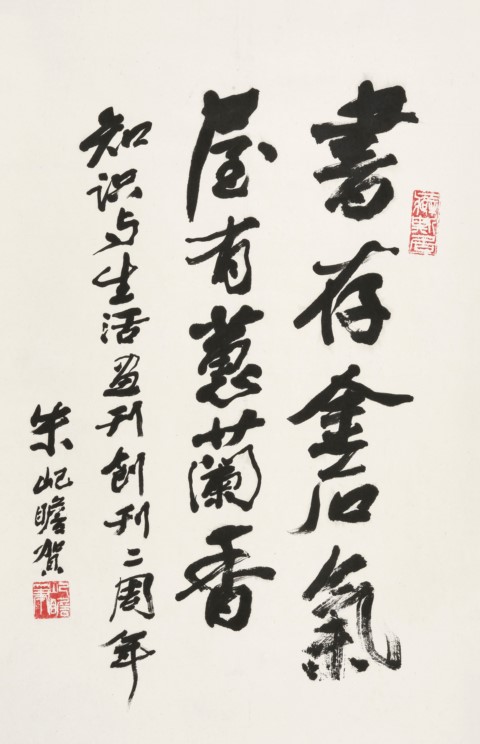 書存金石氣
屋有蕙蘭香
知识与生活画刊创刊二周年
朱屺瞻贺